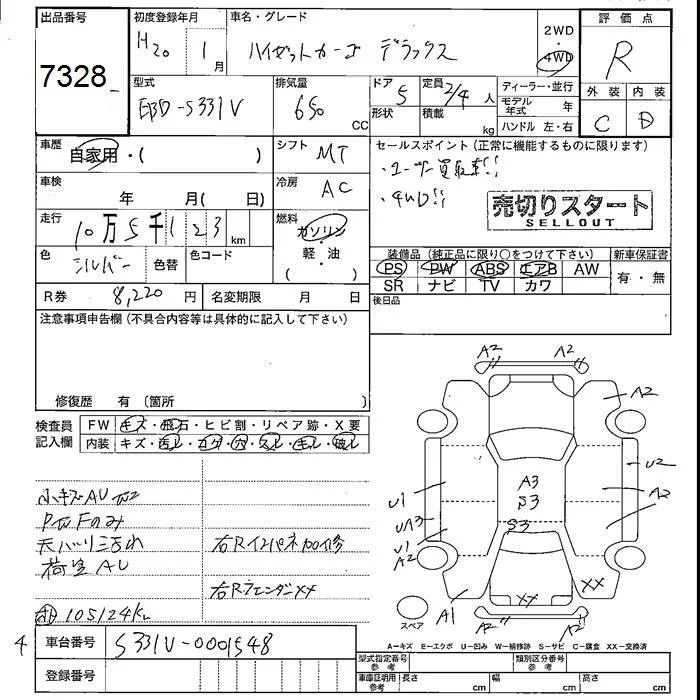 出品番号
7328
初度登録年月
H20 1月
車名・グレード
ハイゼットカーゴ デラックス
2WD
4WD
評価点
R
外装 内装
C D
型式
EBD-S331V
排気量
650 CC
ドア 5
形状
定員 2/4 人
積載 kg
ディーラー・並行
モデル年式 年
ハンドル 左・右
車歴
自家用・( )
シフト MT
車検
年 月( 日)
冷房 AC
走行
10万5千123km
燃料
ガソリン
軽・油
( )
色 シルバー
色替
色コード
R券 8,220円
名変期限 月 日
セールスポイント(正常に機能するものに限ります)
・ユーザー買取車!!
・4WD!!
売切りスタート
SELLOUT
装備品(純正品に限り○をつけて下さい)
新車保証書
PS PW ABS エアB AW
SR ナビ TV カワ
有・無
後日品
注意事項申告欄(不具合内容等は具体的に記入して下さい)
修復歴 有 〔箇所 〕
検査員
記入欄
FW キズ・飛石・ヒビ割・リペア跡・X要
内装 キズ・汚レ・コゲ・穴・スレ・モレ・破レ
小キズAU
PW Fのみ
荷室AU
右Rインパネ加修
右Rフェンダーxx
105124km
4
車台番号 S331V-0001548
登録番号
A2 A2
A2
U2
A2
A3
S3
S3
U1
UA3
U1
A2
A1
XX
XX
A2 A2
スペア
A-キズ E-エクボ U-凹み W-補修跡 S-サビ C-腐食 XX-交換済
型式指定番号
参考
類別区分番号
参考
車庫証明用
参考
長さ cm
幅 cm
高さ cm